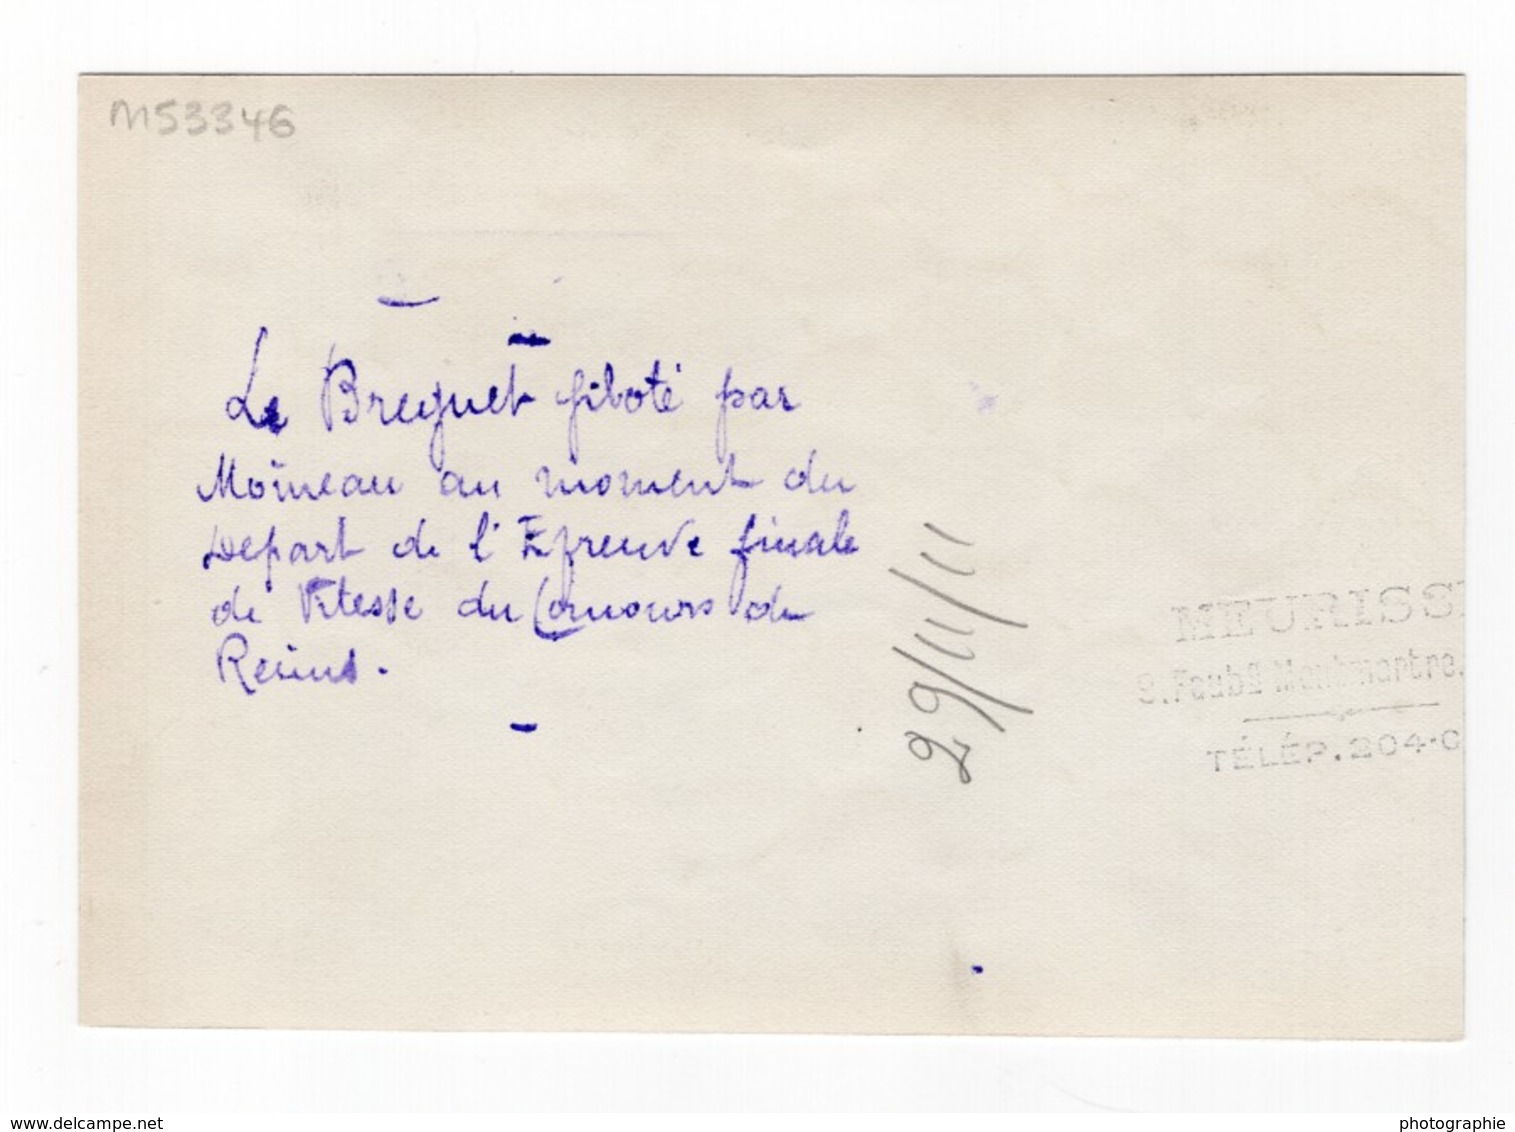 M53346
Le Breguet piloté par
Moineau au moment du
Depart de l'Epreuve finale
de Vitesse du Concours de
Reims.
29/11/11
MEURISS
9. Faubg Montmartre.
TÉLÉP. 204-
www.delcampe.net
photographie